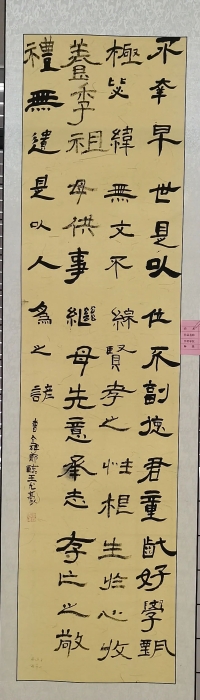 不幸早世是以位不副德君童齔好學甄
極毖緯無文不綜賢孝之性根生於心收
養季祖母供事繼母先意承志存亡之敬
禮無遺是以人為之諺